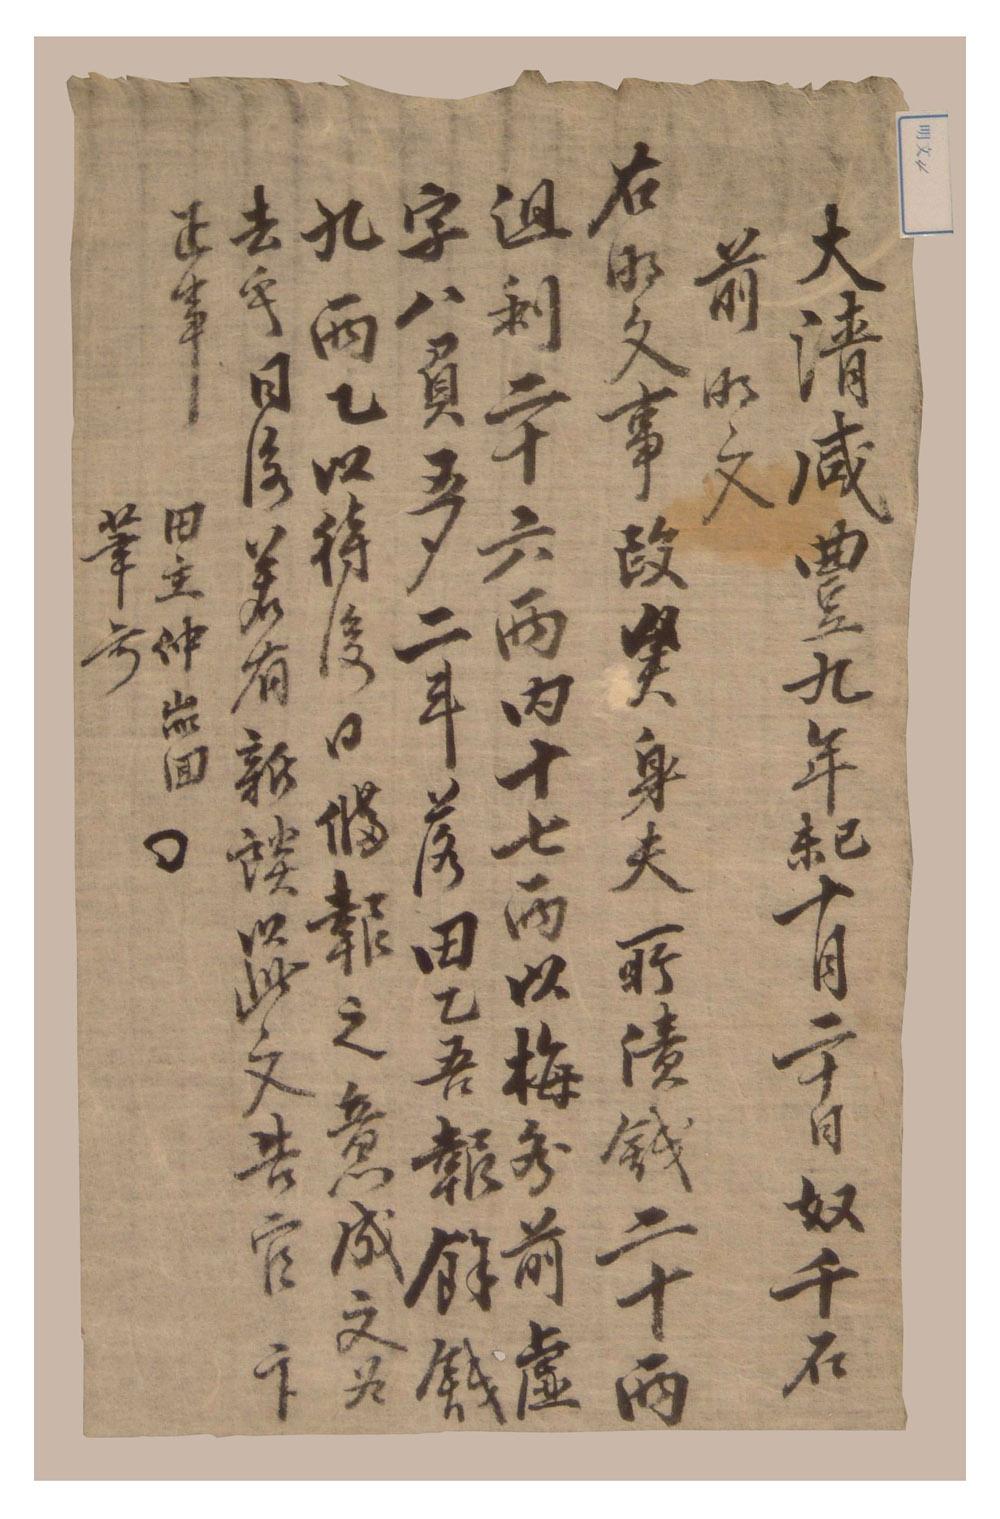 大淸咸豊九年己未十月二十日奴千石
前明文
右明文事段矣身夫所債錢二十兩
𨓏利二十六兩內十七兩以梅谷前虛
字八負五夕二斗落田乙吾報餘錢
九兩乙以待後日備報之意成文爲
去乎日後若有新談以此文告官卞
正事
田主仲 出回
筆寺
明文